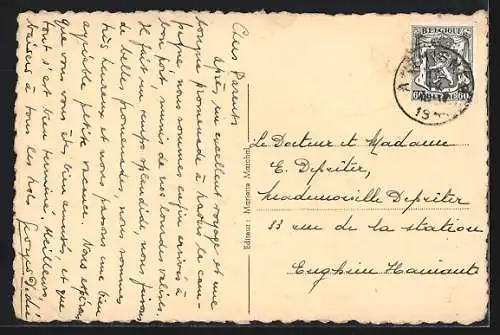 Chers Parents
Après un excellent voyage et une
longue promenade à travers la cam-
pagne, nous sommes enfin arrivés à
bon port, munis de nos lourdes valises.
Il fait un temps splendide, nous faisons
de belles promenades, nous sommes
très heureux et nous passons une bien
agréable petite vacance. Nous espérons
que vous vous êtes bien amusés, et que
tout s'est bien terminé. Meilleurs
baisers à tous les trois.
Editeur : Marianne
BELGIQUE
60
60
19
Le Docteur et Madame
E. Depreter,
Mademoiselle Depreter
33 rue de la station
Enghien Hainaut